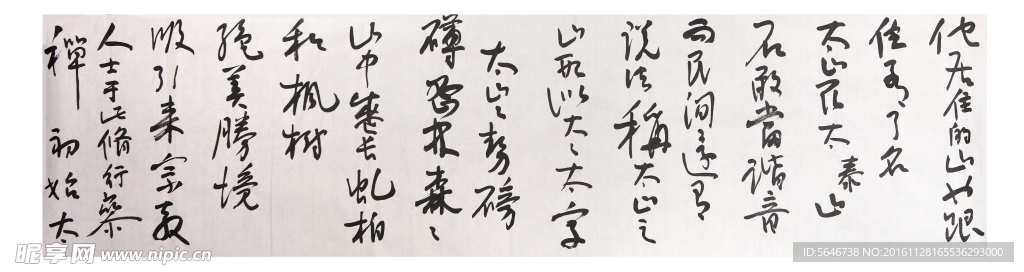 他居住的山也跟
住有了名
太山石太泰山
石敢当谐音
而民间还有
说法稱太山之
山形似大大太字
太山之势磅
礴
山中岩长虬柏
和楓樹
绝美勝境
吸引来宗教
人士于此修行参
禪初始太
昵享网 www.nipic.cn
ID:5646738 NO:20161128165536293000